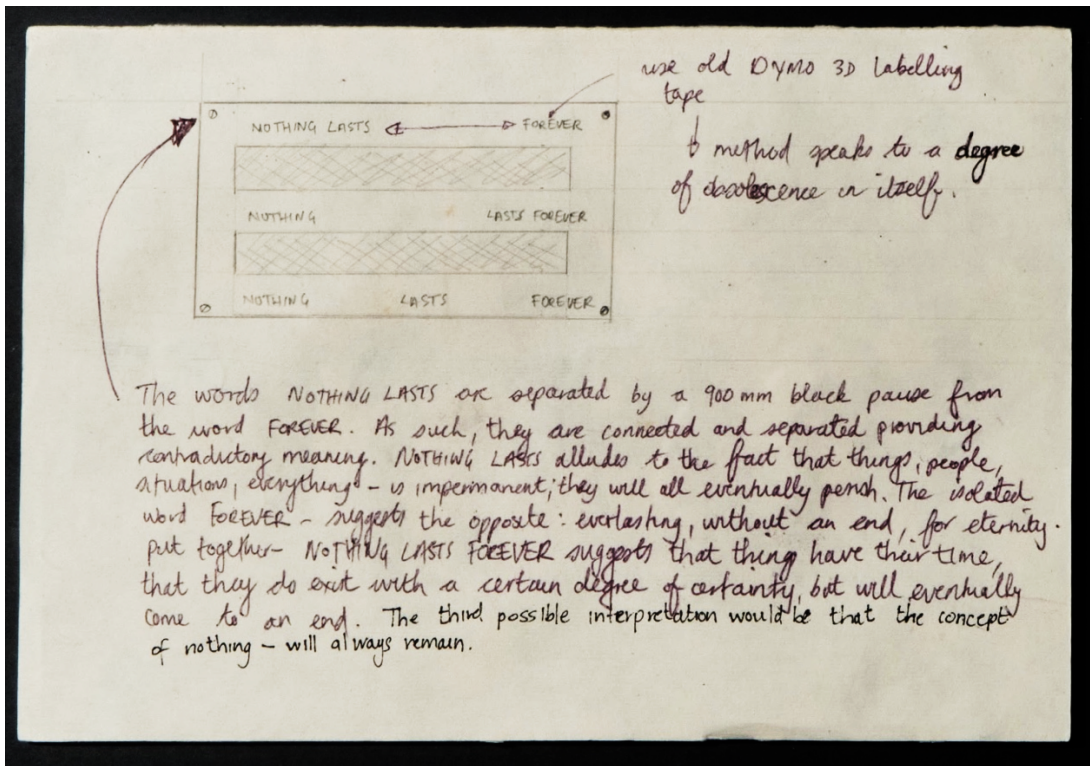 use old DYMO 3D Labelling
tape
method speaks to a degree
of obsolescence in itself.
NOTHING LASTS FOREVER
NOTHING LASTS FOREVER
NOTHING LASTS FOREVER
The words NOTHING LASTS are separated by a 900 mm black pause from
the word FOREVER. As such, they are connected and separated providing
contradictory meaning. NOTHING LASTS alludes to the fact that things, people,
situations, everything - is impermanent; they will all eventually perish. The isolated
word FOREVER - suggests the opposite: everlasting, without an end, for eternity.
Put together - NOTHING LASTS FOREVER suggests that things have their time,
that they do exist with a certain degree of certainty, but will eventually
come to an end. The third possible interpretation would be that the concept
of nothing - will always remain.